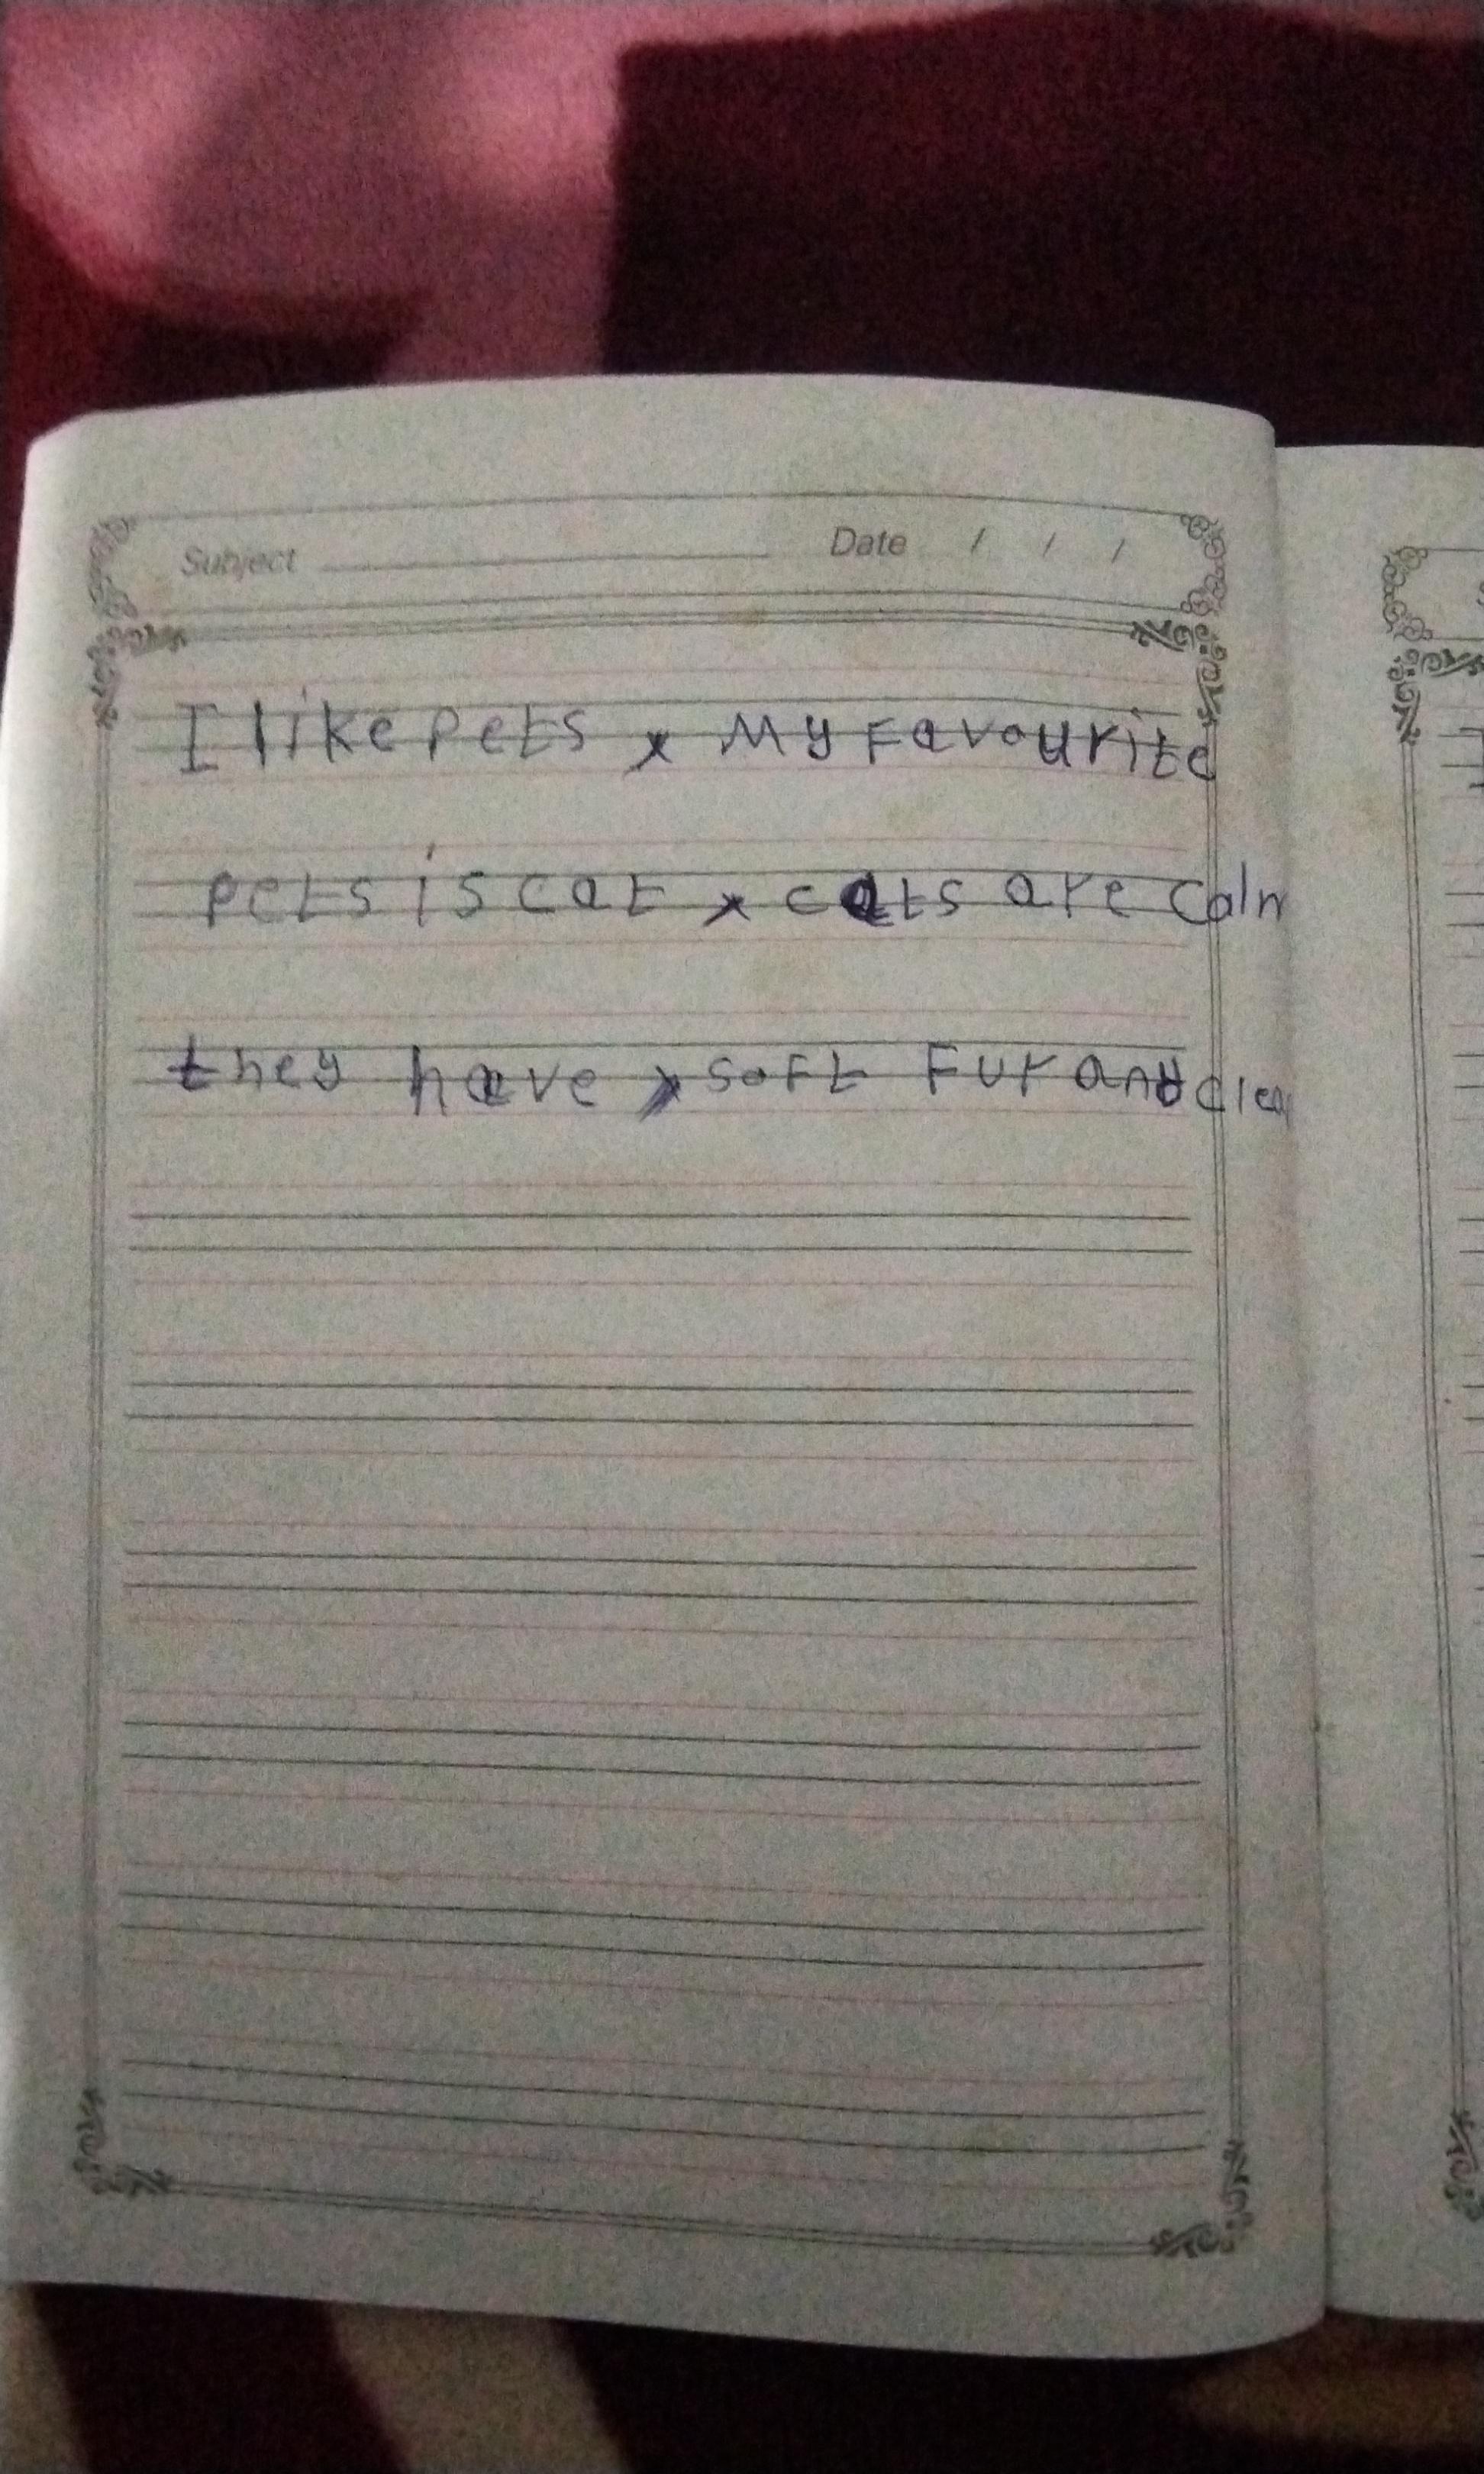 Subject Date / / /
I like pets x My Favourite
pets is cat x cats are calm
they have x soft Fur and clea